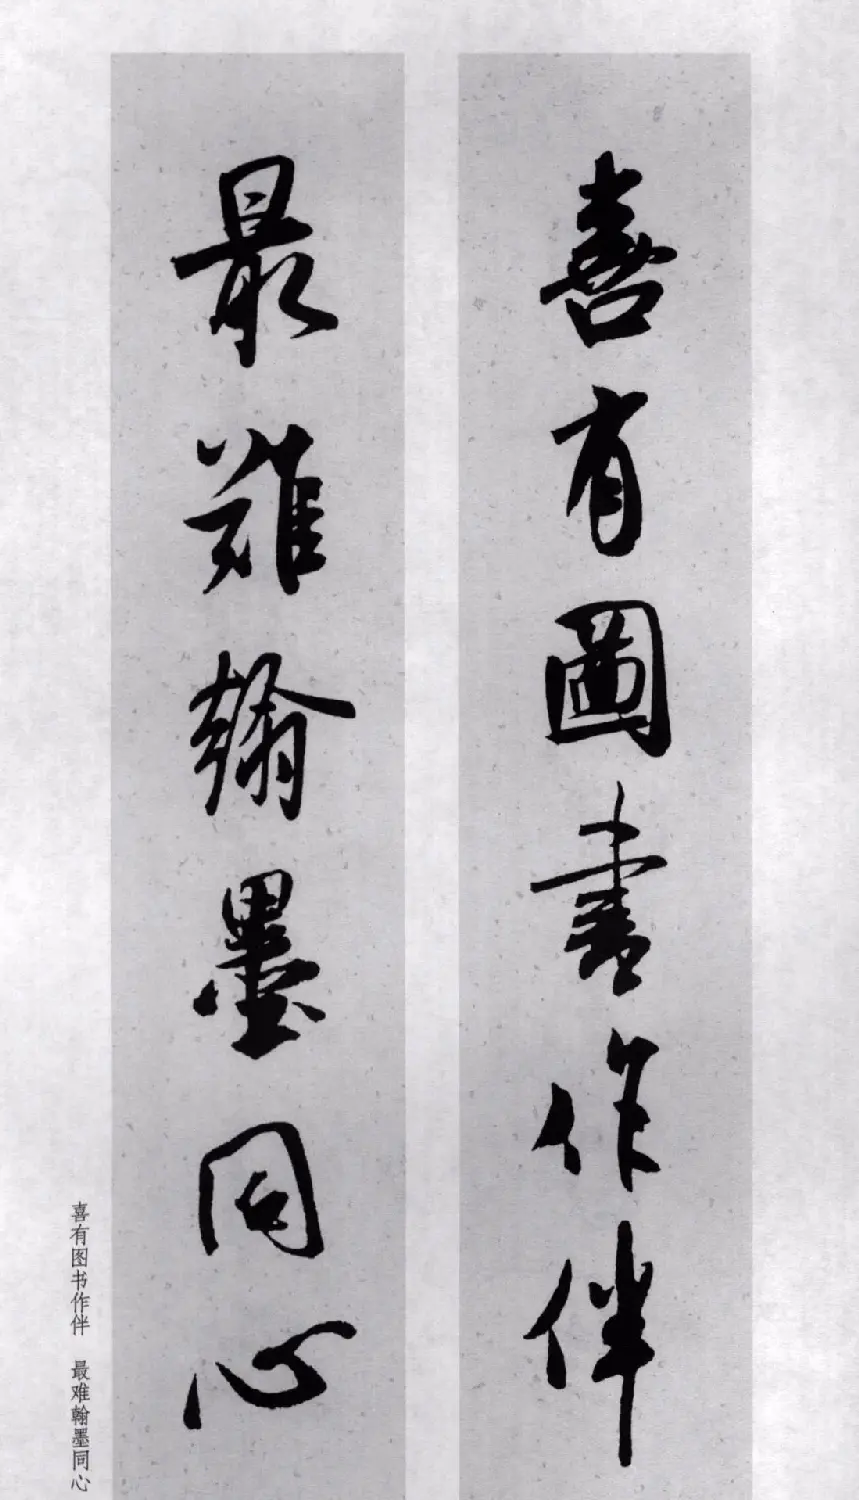 喜有圖書作伴
最難翰墨同心
喜有图书作伴 最难翰墨同心